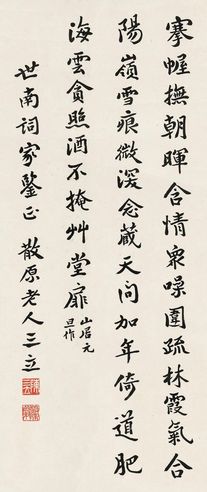 搴幄撫朝暉含情衆噪圍疏林霞氣合
陽嶺雪痕微深念藏天問加年倚道肥
海雲貪照酒不掩艸堂扉 山居元旦作
世南詞家鑒正 散原老人三立